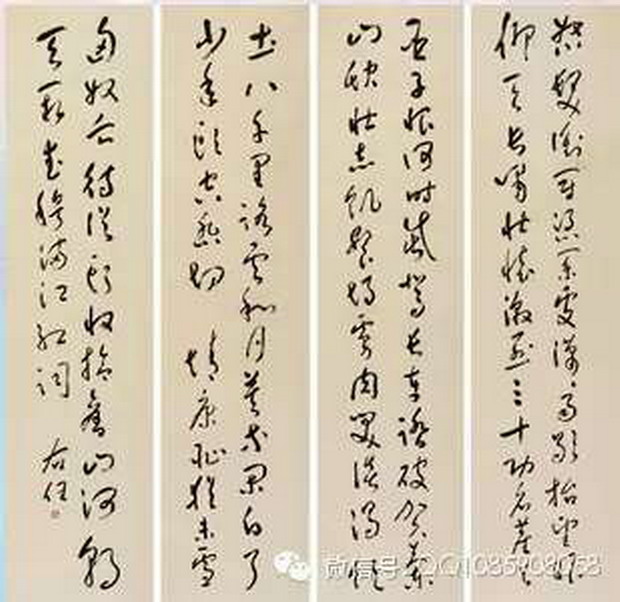 怒髮衝冠憑闌處瀟瀟雨歇抬望眼
仰天長嘯壯懷激烈三十功名塵與
臣子恨何時滅駕長車踏破賀蘭
山缺壯志飢餐胡虜肉笑談渴飲
土八千里路雲和月莫等閒白了
少年頭空悲切 靖康恥猶未雪
匈奴血待從頭收拾舊山河朝
天闕武穆滿江紅詞 右任
微信号